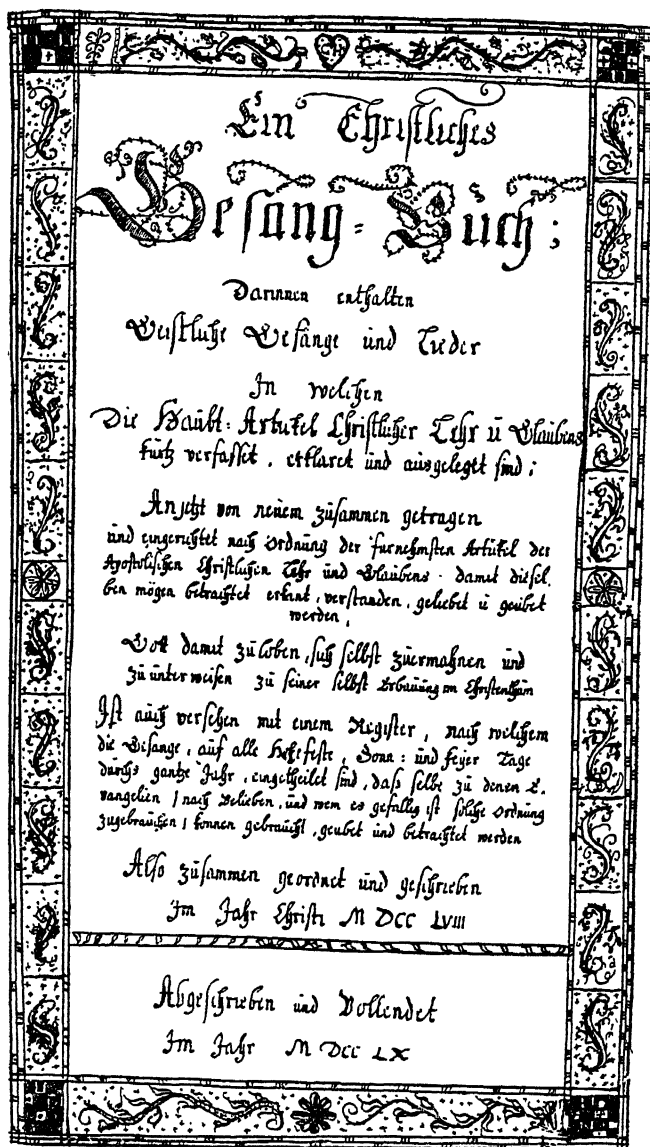 Ein Christliches
Gesang=Buch;
Darinnen enthalten
Geistliche Gesänge und Lieder
In welchen
Die Haubt=Artickel Christlicher Lehr u Glaubens
kurtz verfasset, erklaret und ausgeleget sind;
Anjetzt von neuem zusammen getragen
und eingerichtet nach Ordnung der furnehmsten Artickel der
Apostolischen Christlichen Lehr und Glaubens. damit diesel,
ben mögen betrachtet erkant, verstanden, geliebet u geubet
werden,
Gott damit zu loben, sich selbst zuermahnen und
zu unterweisen zu seiner selbst Erbauung im Christenthum
Ist auch versehen mit einem Register, nach welchem
die Gesange, auf alle Hohefeste, Sonn: und Feyer Tage
durchs gantze Jahr, eingetheilet sind, dass selbe zu denen E.
vangelien / nach Belieben, und wem es gefallig ist solche Ordnung
zugebrauchen / konnen gebraucht, geubet und betrachtet werden
Also zusammen geordnet und geschrieben
Im Jahr Christi M DCC LVIII
Abgeschrieben und Vollendet
Im Jahr M DCC LX